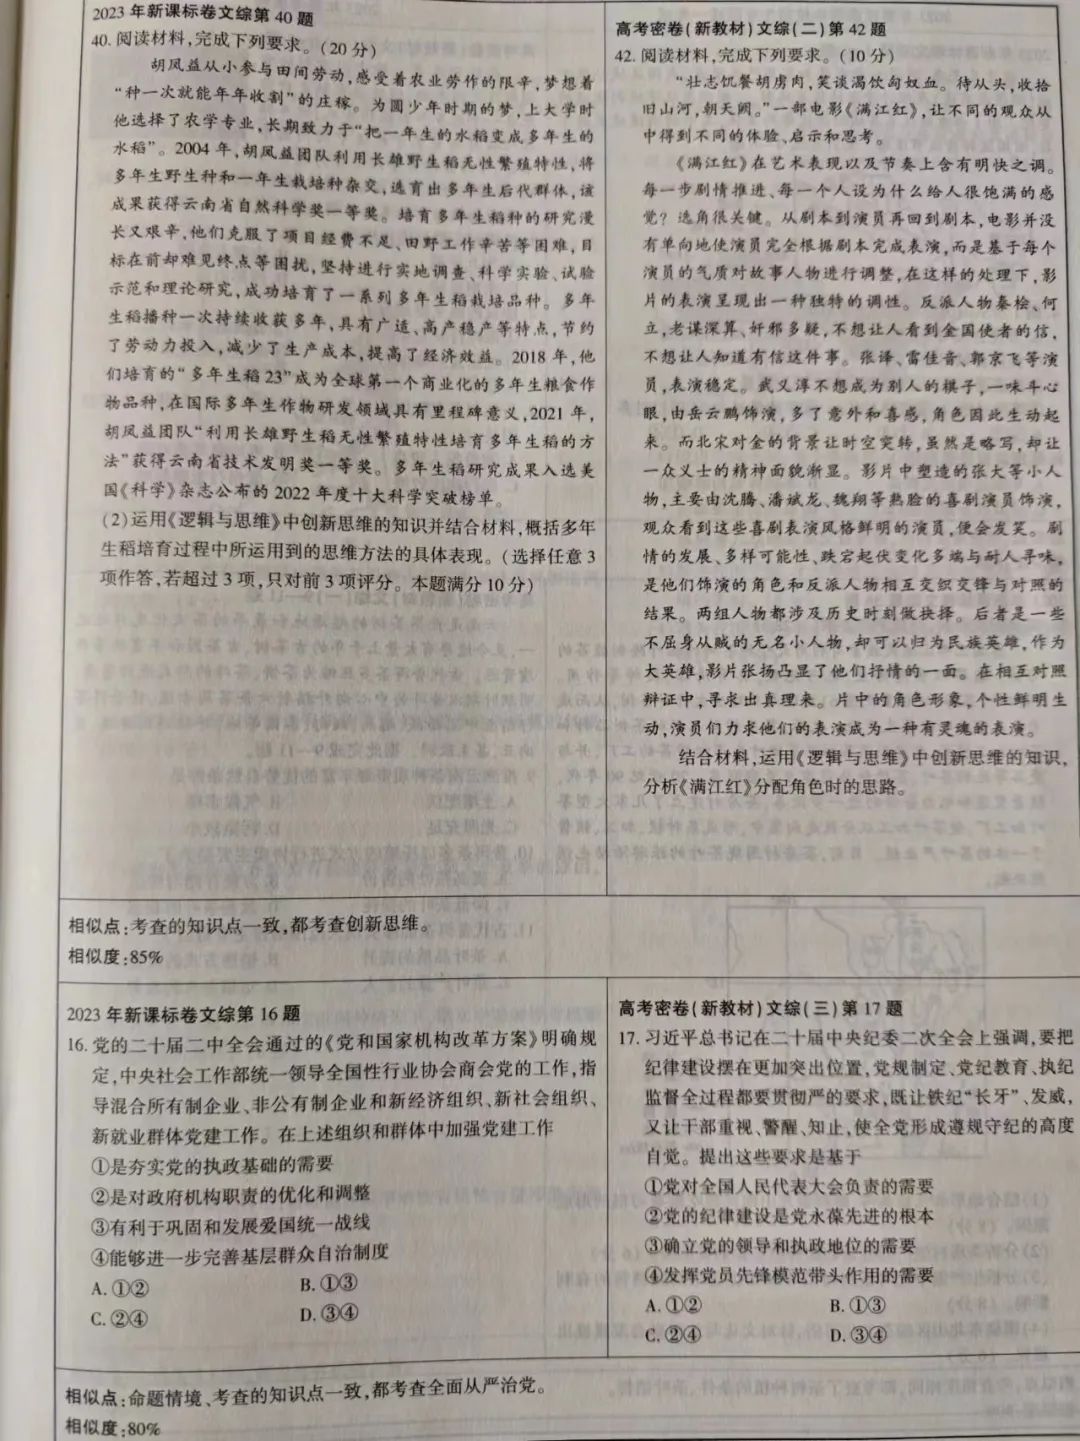 2023年新课标卷文综第40题
40. 阅读材料,完成下列要求。(20分)
胡凤益从小参与田间劳动,感受着农业劳作的限辛,梦想着
“种一次就能年年收割”的庄稼。为圆少年时期的梦,上大学时
他选择了农学专业,长期致力于“把一年生的水稻变成多年生的
水稻”。2004年,胡凤益团队利用长雄野生稻无性繁殖特性,将
多年生野生种和一年生栽培种杂交,选育出多年生后代群体,该
成果获得云南省自然科学奖一等奖。培育多年生稻种的研究漫
长又艰辛,他们克服了项目经费不足、田野工作辛苦等困难,目
标在前却难见终点等困扰,坚持进行实地调查、科学实验、试验
示范和理论研究,成功培育了一系列多年生稻栽培品种。多年
生稻播种一次持续收获多年,具有广适、高产稳产等特点,节约
了劳动力投入,减少了生产成本,提高了经济效益。2018年,他
们培育的“多年生稻23”成为全球第一个商业化的多年生粮食作
物品种,在国际多年生作物研发领域具有里程碑意义,2021年,
胡凤益团队“利用长雄野生稻无性繁殖特性培育多年生稻的方
法”获得云南省技术发明奖一等奖。多年生稻研究成果入选美
国《科学》杂志公布的2022年度十大科学突破榜单。
(2)运用《逻辑与思维》中创新思维的知识并结合材料,概括多年
生稻培育过程中所运用到的思维方法的具体表现。(选择任意3
项作答,若超过3项,只对前3项评分。本题满分10分)
高考密卷(新教材)文综(二)第42题
42. 阅读材料,完成下列要求。(10分)
“壮志饥餐胡虏肉,笑谈渴饮匈奴血。待从头,收拾
旧山河,朝天阙。”一部电影《满江红》,让不同的观众从
中得到不同的体验、启示和思考。
《满江红》在艺术表现以及节奏上含有明快之调。
每一步剧情推进、每一个人设为什么给人很饱满的感
觉?选角很关键。从剧本到演员再回到剧本,电影并没
有单向地使演员完全根据剧本完成表演,而是基于每个
演员的气质对故事人物进行调整,在这样的处理下,影
片的表演呈现出一种独特的调性。反派人物秦桧、何
立,老谋深算、奸邪多疑,不想让人看到金国使者的信,
不想让人知道有信这件事。张译、雷佳音、郭京飞等演
员,表演稳定。武义淳不想成为别人的棋子,一味斗心
眼,由岳云鹏饰演,多了意外和喜感,角色因此生动起
来。而北宋对金的背景让时空突转,虽然是略写,却让
一众义士的精神面貌渐显。影片中塑造的张大等小人
物,主要由沈腾、潘斌龙、魏翔等熟脸的喜剧演员饰演,
观众看到这些喜剧表演风格鲜明的演员,便会发笑。剧
情的发展、多样可能性、跌宕起伏变化多端与耐人寻味,
是他们饰演的角色和反派人物相互交织交锋与对照的
结果。两组人物都涉及历史时刻做抉择。后者是一些
不屈身从贼的无名小人物,却可以归为民族英雄,作为
大英雄,影片张扬凸显了他们抒情的一面。在相互对照
辩证中,寻求出真理来。片中的角色形象,个性鲜明生
动,演员们力求他们的表演成为一种有灵魂的表演。
结合材料,运用《逻辑与思维》中创新思维的知识,
分析《满江红》分配角色时的思路。
相似点:考查的知识点一致,都考查创新思维。
相似度:85%
2023年新课标卷文综第16题
16. 党的二十届二中全会通过的《党和国家机构改革方案》明确规
定,中央社会工作部统一领导全国性行业协会商会党的工作,指
导混合所有制企业、非公有制企业和新经济组织、新社会组织、
新就业群体党建工作。在上述组织和群体中加强党建工作
①是夯实党的执政基础的需要
②是对政府机构职责的优化和调整
③有利于巩固和发展爱国统一战线
④能够进一步完善基层群众自治制度
A. ①② B. ①③
C. ②④ D. ③④
高考密卷(新教材)文综(三)第17题
17. 习近平总书记在二十届中央纪委二次全会上强调,要把
纪律建设摆在更加突出位置,党规制定、党纪教育、执纪
监督全过程都要贯彻严的要求,既让铁纪“长牙”、发威,
又让干部重视、警醒、知止,使全党形成遵规守纪的高度
自觉。提出这些要求是基于
①党对全国人民代表大会负责的需要
②党的纪律建设是党永葆先进的根本
③确立党的领导和执政地位的需要
④发挥党员先锋模范带头作用的需要
A. ①② B. ①③
C. ②④ D. ③④
相似点:命题情境、考查的知识点一致,都考查全面从严治党。
相似度:80%